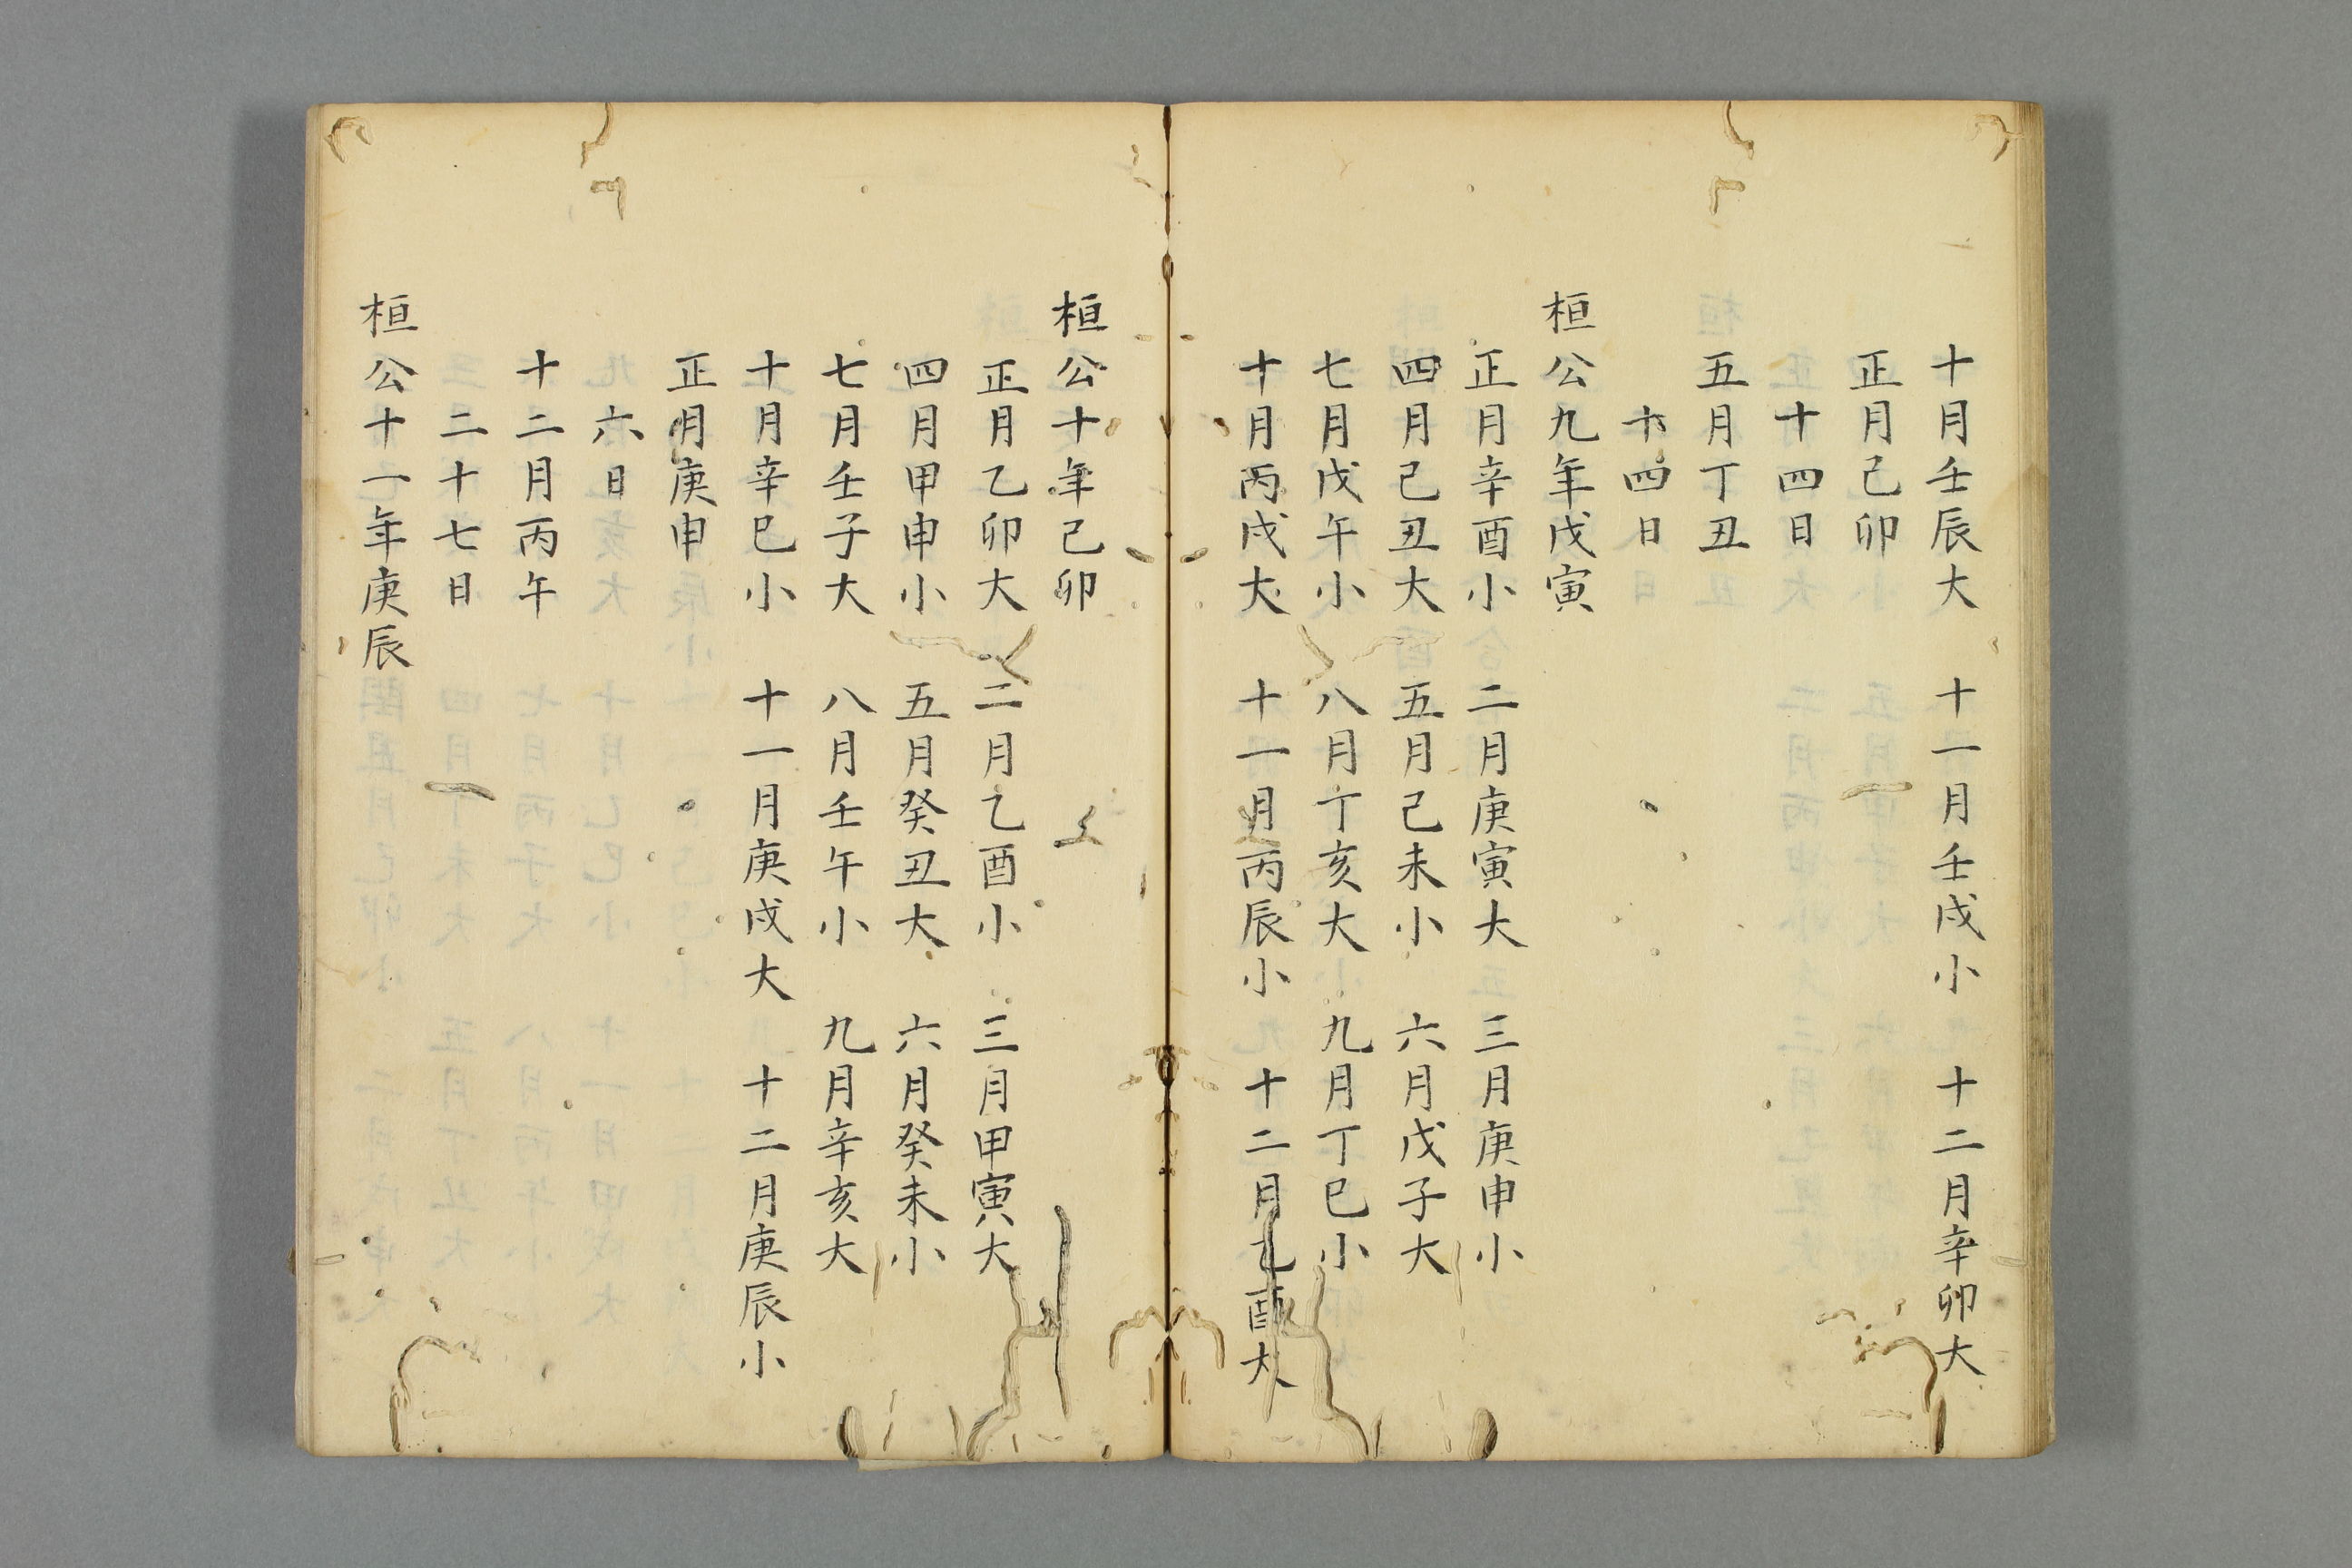 十月壬辰大　十一月壬戌小　十二月辛卯大
正月己卯
十四日
五月丁丑
十四日
桓公九年戊寅
正月辛酉小　二月庚寅大　三月庚申小
四月己丑大　五月己未小　六月戊子大
七月戊午小　八月丁亥大　九月丁巳小
十月丙戌大　十一月丙辰小　十二月乙酉大
桓公十年己卯
正月乙卯大　二月乙酉小　三月甲寅大
四月甲申小　五月癸丑大　六月癸未小
七月壬子大　八月壬午小　九月辛亥大
十月辛巳小　十一月庚戌大　十二月庚辰小
正月庚申
六日
十二月丙午
二十七日
桓公十一年庚辰